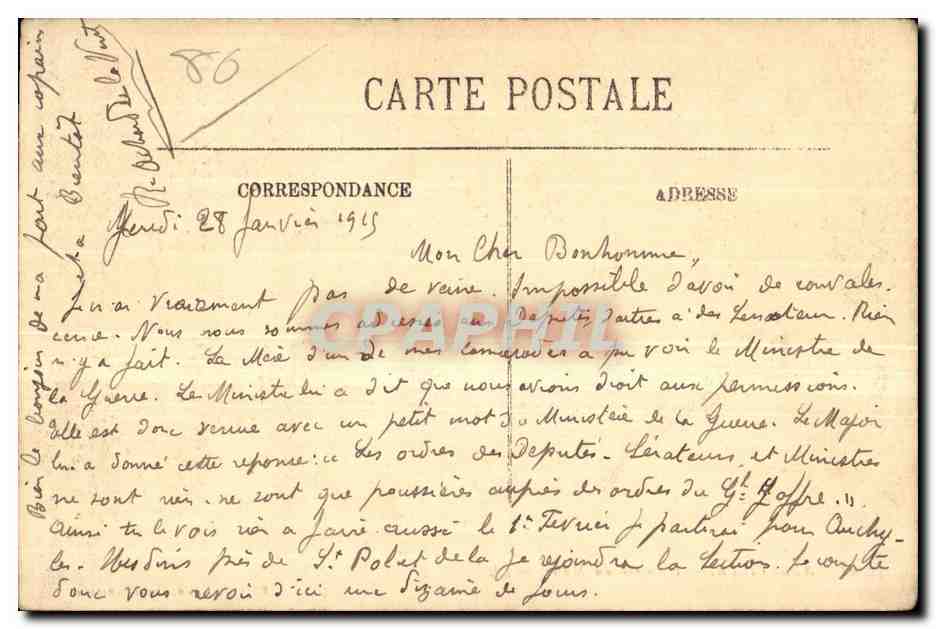 86
CARTE POSTALE
CORRESPONDANCE
ADRESSE
Jeudi 28 Janvier 1915
Mon Cher Bonhomme,
Je n'ai vraiement pas de veine. Impossible d'avoir de convales-
cence. Nous nous sommes adressés aux Députés d'autres à des Senateur. Rien
n'y a fait. La Mère d'un de mes Camarades a pu voir le Ministre de
la Guerre. Le Ministre lui a dit que nous avions droit aux permissions.
Elle est donc venue avec un petit mot du Ministère de la Guerre. Le Major
lui a donné cette reponse: " Les ordres des Deputés - Sénateurs et Ministres
ne sont rien - ne sont que poussières auprès des ordres du Gal Joffre. "
Ainsi tu le vois rien a faire aussi le 1er Fevrier je partirai pour Auchy-
les-Hesdins près de St Pol et de la je rejoindrai la Section. Je compte
donc vous revoir d'ici une dizaine de jours.
Bien le bonjour de ma part aux copains
et a Bientôt
CPAPHIL